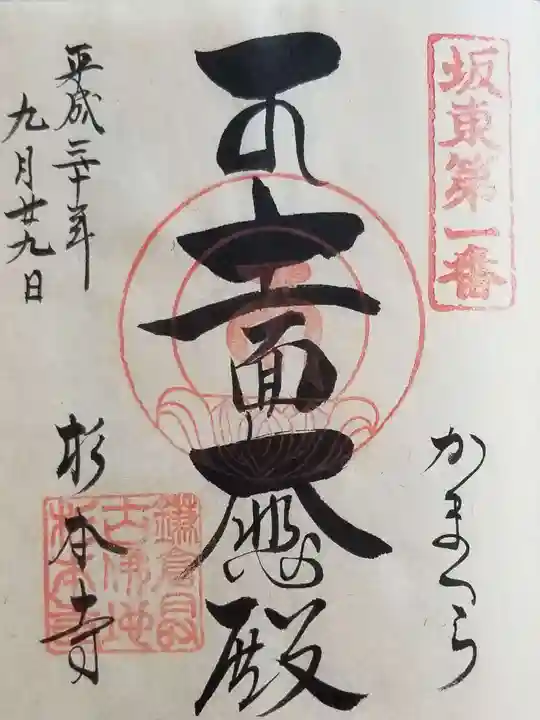 坂東第一番
かまくら
十一面大悲殿
平成三十年
九月廿九日
杉本寺
鎌倉最
古佛地
杉本寺